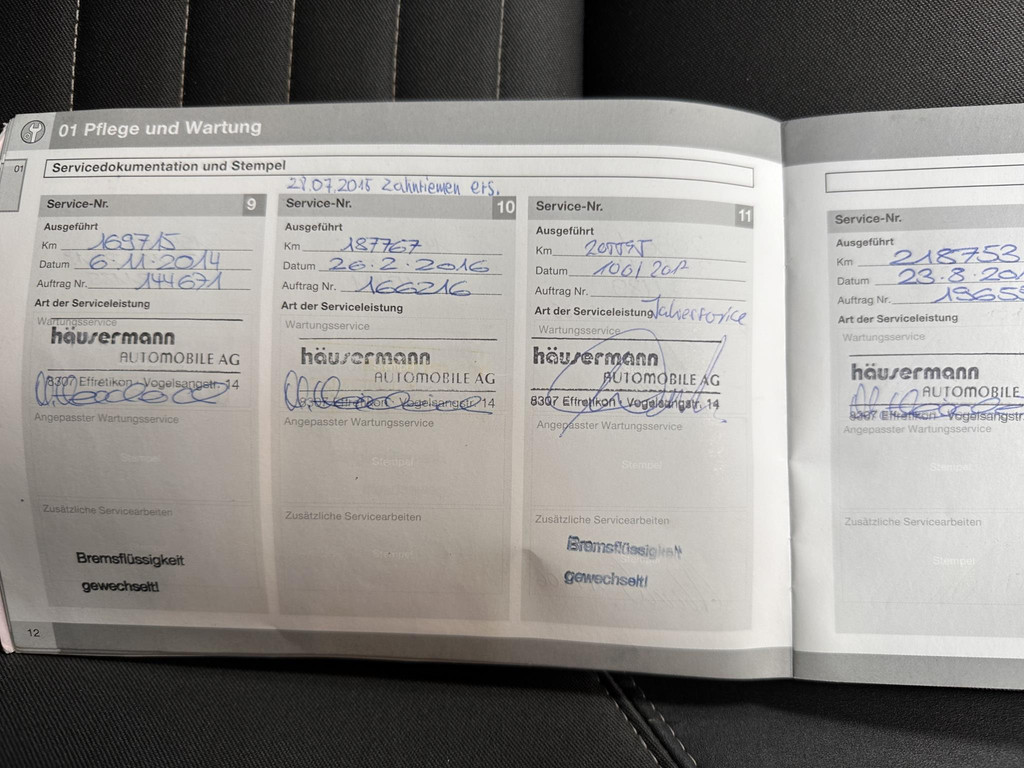 01 Pflege und Wartung
01
Servicedokumentation und Stempel
28.07.2015 Zahnriemen ers.
Service-Nr. 9
Ausgeführt
Km 169715
Datum 6.11.2014
Auftrag Nr. 144671
Art der Serviceleistung
Wartungsservice
häusermann
AUTOMOBILE AG
8307 Effretikon · Vogelsangstr. 14
Angepasster Wartungsservice
Stempel
Zusätzliche Servicearbeiten
Bremsflüssigkeit
gewechselt!
Service-Nr. 10
Ausgeführt
Km 187767
Datum 26.2.2016
Auftrag Nr. 166216
Art der Serviceleistung
Wartungsservice
häusermann
AUTOMOBILE AG
8307 Effretikon · Vogelsangstr. 14
Angepasster Wartungsservice
Stempel
Zusätzliche Servicearbeiten
Stempel
Service-Nr. 11
Ausgeführt
Km
Datum
Auftrag Nr.
Art der Serviceleistung Jahresservice
Wartungsservice
häusermann
AUTOMOBILE AG
8307 Effretikon · Vogelsangstr. 14
Angepasster Wartungsservice
Stempel
Zusätzliche Servicearbeiten
Bremsflüssigkeit
gewechselt!
Service-Nr.
Ausgeführt
Km 218753
Datum 23.8.20
Auftrag Nr.
Art der Serviceleistung
Wartungsservice
häusermann
AUTOMOBILE
8307 Effretikon · Vogelsangstr.
Angepasster Wartungsservice
Stempel
Zusätzliche Servicearbeiten
Stempel
12